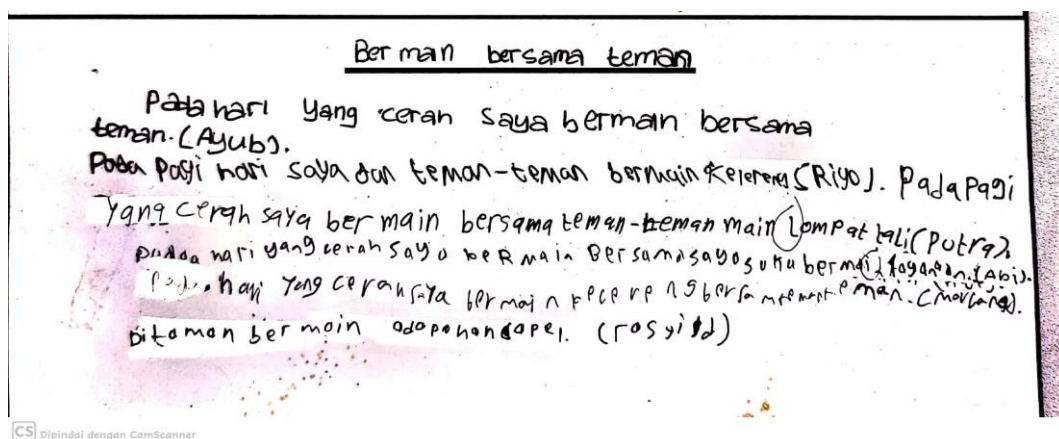 Ber main bersama teman
Pada hari yang cerah saya bermain bersama
teman. (Ayub).
Pada Pagi hari saya dan teman-teman bermain Kelereng (Riyo). Pada Pagi
yang cerah saya ber main bersama teman-teman main Lompat tali (Putra).
Padda hari yang cerah saya beRmain Bersamasayasuka bermain layangan. (Abi).
Pada hari yang cerah saya bermain bersama
Ditaman ber main adapohonapel. (rosyidd)
CS Dipindai dengan CamScanner